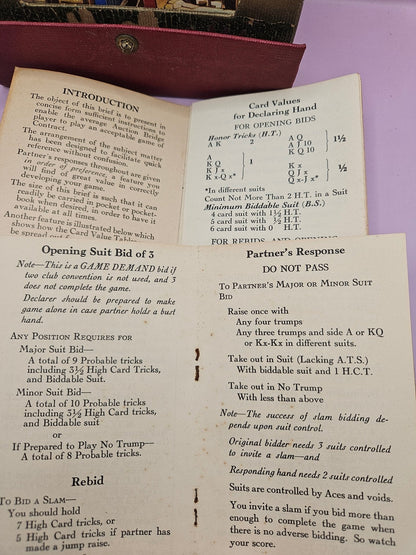 INTRODUCTION
The object of this brief is to present in
concise form sufficient instructions to
enable the average Auction Bridge
player to play an acceptable game of
Contract.
The arrangement of the subject matter
has been designed to facilitate quick
reference without confusion.
Partner's responses throughout are given
in order of preference, a feature you
will find of great value in correctly
developing your game.
The size of this brief is such that it can
readily be carried in pocket or pocket-
book when desired, in order to have it
available at all times.
Another feature is illustrated below which
shows how the Card Value Table
be spread
Card Values
for Declaring Hand
FOR OPENING BIDS
Honor Tricks (H.T.)
A K 2
A Q
A J 10
K Q 10
1½
A
K Q
K x-Q x*
1
K x
Q J x
Q x-J x*
½
*In different suits
Count Not More Than 2 H.T. in a Suit
Minimum Biddable Suit (B.S.)
4 card suit with 1½ H.T.
5 card suit with ½ H.T.
6 card suit with 0 H.T.
FOR REBIDS AND OPENING
Opening Suit Bid of 3
Note—This is a GAME DEMAND bid if
two club convention is not used, and 3
does not complete the game.
Declarer should be prepared to make
game alone in case partner holds a bust
hand.
ANY POSITION REQUIRES FOR
Major Suit Bid—
A total of 9 Probable tricks
including 3½ High Card Tricks,
and Biddable Suit.
Minor Suit Bid—
A total of 10 Probable tricks
including 3½ High Card tricks,
and Biddable suit
or
If Prepared to Play No Trump—
A total of 8 Probable tricks.
Rebid
TO BID A SLAM—
You should hold
7 High Card tricks, or
5 High Card tricks if partner has
made a jump raise.
Partner's Response
DO NOT PASS
TO PARTNER'S MAJOR OR MINOR SUIT
BID
Raise once with
Any four trumps
Any three trumps and side A or KQ
or Kx-Kx in different suits.
Take out in Suit (Lacking A.T.S.)
With biddable suit and 1 H.C.T.
Take out in No Trump
With less than above
Note—The success of slam bidding de-
pends upon suit control.
Original bidder needs 3 suits controlled
to invite a slam—and
Responding hand needs 2 suits controlled
Suits are controlled by Aces and voids.
You invite a slam if you bid more than
enough to complete the game when
there is no adverse bidding. So watch
your score.